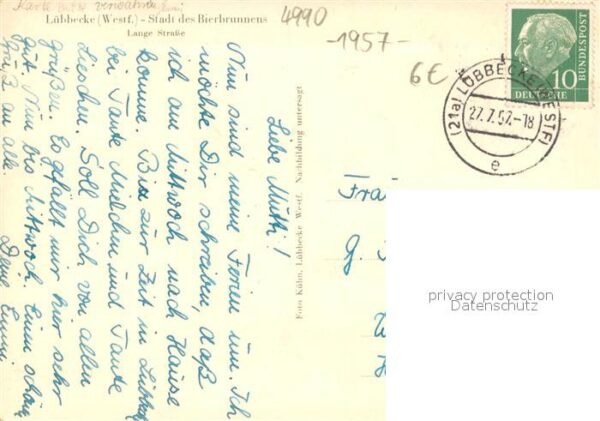 Karte bitte verwahren, Emmi
Lübbecke (Westf.) - Stadt des Bierbrunnens
Lange Straße
4990
-1957-
6€
DEUTSCHE
BUNDESPOST
10
(21a) LÜBBECKE (WESTF)
27.7.57.-18
e
Liebe Mutti!
Nun sind meine Ferien um. Ich
möchte Dir schreiben, daß
ich am Mittwoch nach Hause
komme. Bin zur Zeit in Lübbecke
bei Tante Malchen und Tante
Lieschen. Soll Dich von allen
grüßen. Es gefällt mir hier sehr
gut. Nun bis Mittwoch. Einen schönen
Gruß an alle.
Deine Emmi.
Foto Kühn, Lübbecke Westf. Nachbildung untersagt
G.
privacy protection
Datenschutz